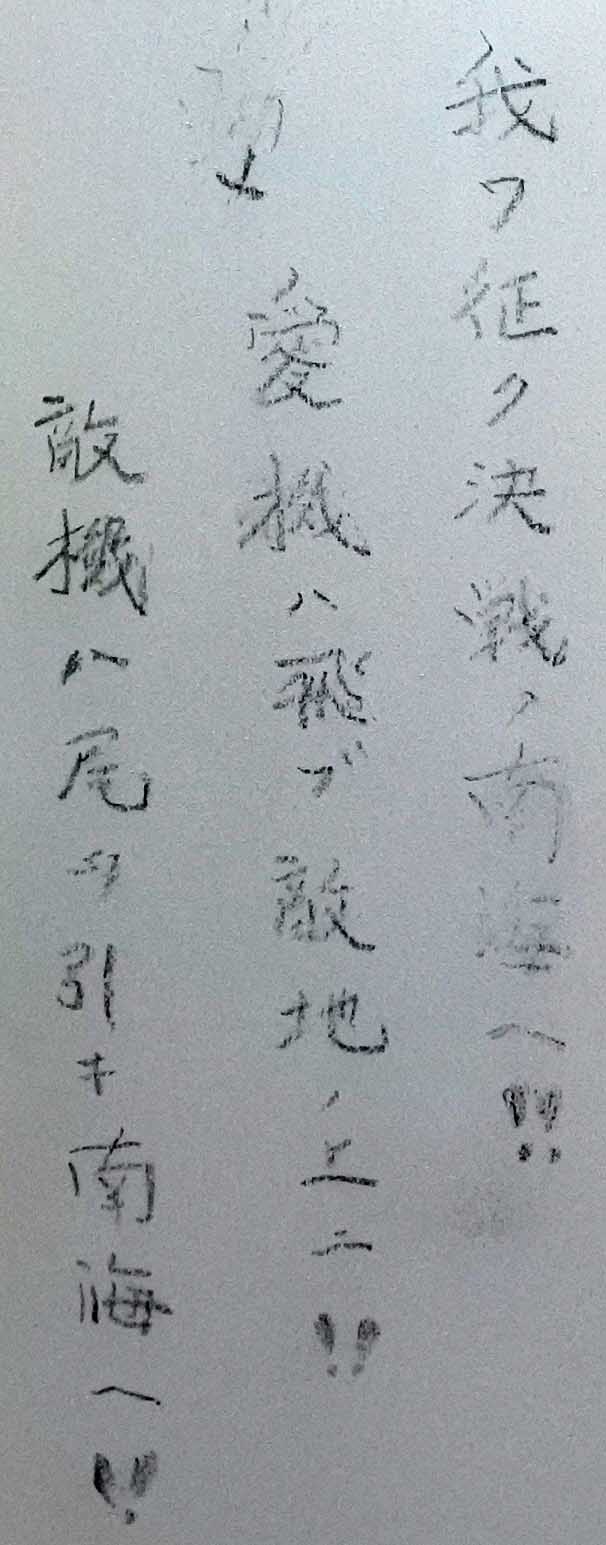 我ワ征ク決戦ノ南海ヘ!!
愛機ハ飛ブ敵地ノ上ニ!!
敵機ハ尾ヲ引キ南海ヘ!!